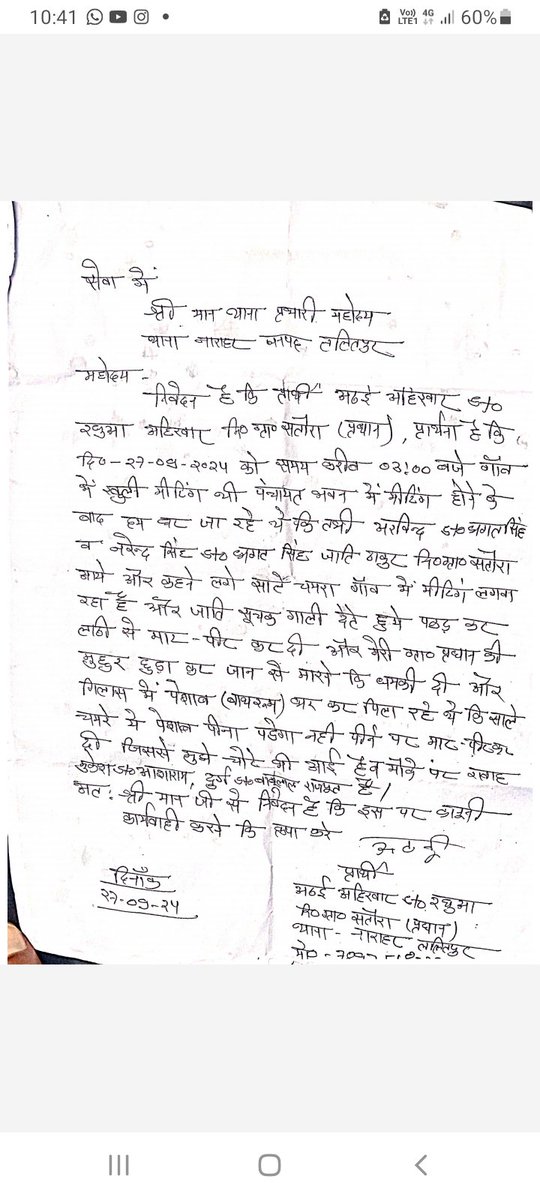 10:41
Vo)) 4G
LTE1
60%
सेवा में
श्री मान थाना प्रभारी महोदय
थाना नाराहट जनपद ललितपुर
महोदय -
निवेदन है कि प्रार्थी मठई अहिरवार S/o
रघुमा अहिरवार नि० ग्रा० सतौरा (प्रधान), प्रार्थना है कि,
दि०-27-09-2024 को समय करीब 03:00 बजे गाँव
में खुली मीटिंग थी पंचायत भवन में मीटिंग होने के
बाद हम घर जा रहे थे कि तभी अरविन्द S/o भगत सिंह
व नरेन्द्र सिंह S/o भगत सिंह जाति ठाकुर नि०ग्रा० सतौरा
आये और कहने लगे साले चमरा गाँव में मीटिंग लगवा
रहा है और जाति सूचक गाली देते हुये पकड़ कर
लाठी से मार-पीट कर दी और मेरी ग्रा० प्रधान की
मुहर छुड़ा कर जान से मारने कि धमकी दी और
गिलास में पेशाब (बाथरूम) भर कर पिला रहे थे कि साले
चमरे ये पेशाब पीना पड़ेगा नही पीने पर मार-पीटकर
दी जिससे मुझे चोटे भी आई है व मौके पर गवाह
मुकेश S/o आशाराम, दुर्ग S/o बाबूलाल राजपूत है।
अत: श्री मान जी से निवेदन है कि इस पर कानूनी
कार्यवाही करने कि कृपा करे
प्रार्थी
मठई अहिरवार S/o रघुमा
नि० ग्रा० सतौरा (प्रधान)
थाना - नाराहट ललितपुर
मो०-
दिनाँक
27-09-24